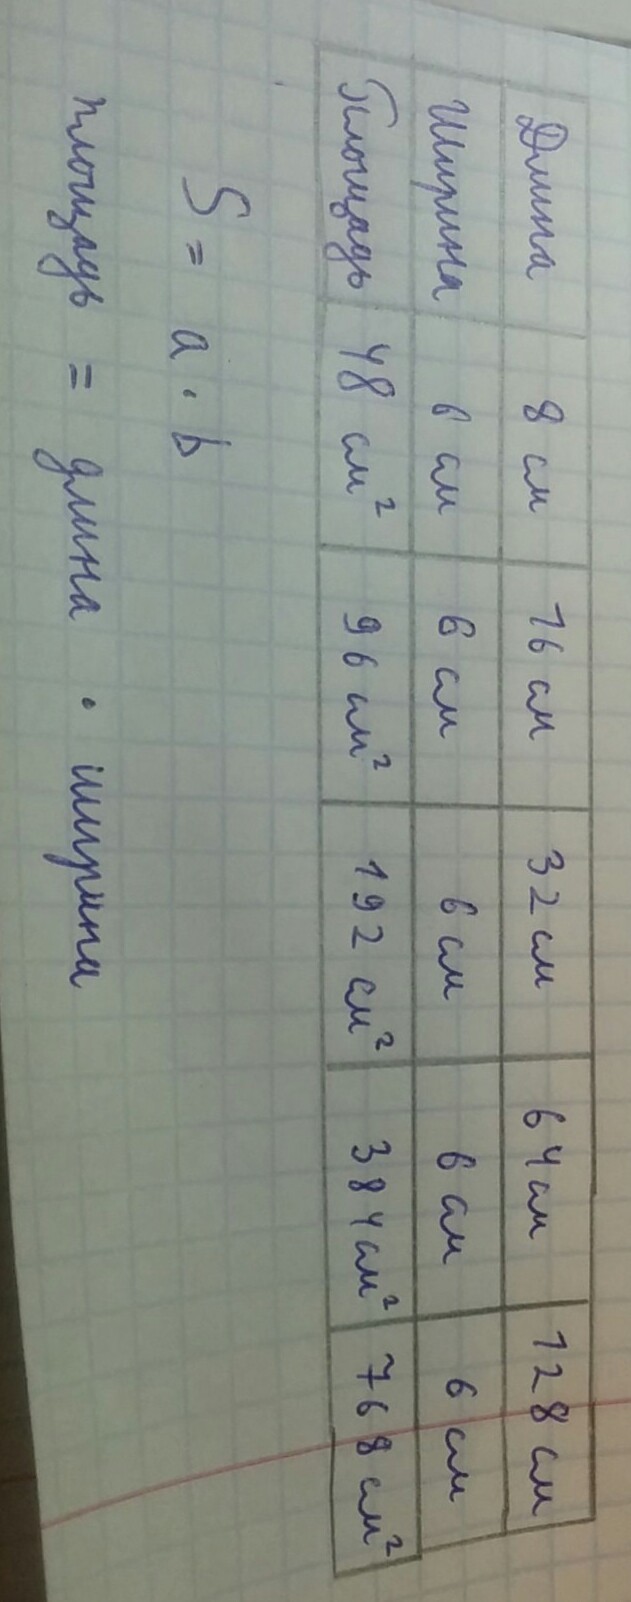 Длина 8 см 16 см 32 см 64 см 128 см
Ширина 6 см 6 см 6 см 6 см 6 см
Площадь 48 см² 96 см² 192 см² 384 см² 768 см²
S = a · b
площадь = длина · ширина